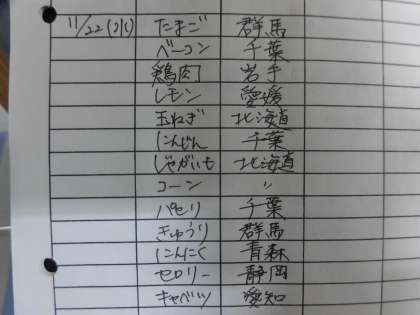 11/22(火) たまご 群馬
ベーコン 千葉
鶏肉 岩手
レモン 愛媛
玉ねぎ 北海道
にんじん 千葉
じゃがいも 北海道
コーン 〃
パセリ 千葉
きゅうり 群馬
にんにく 青森
セロリー 静岡
キャベツ 愛知